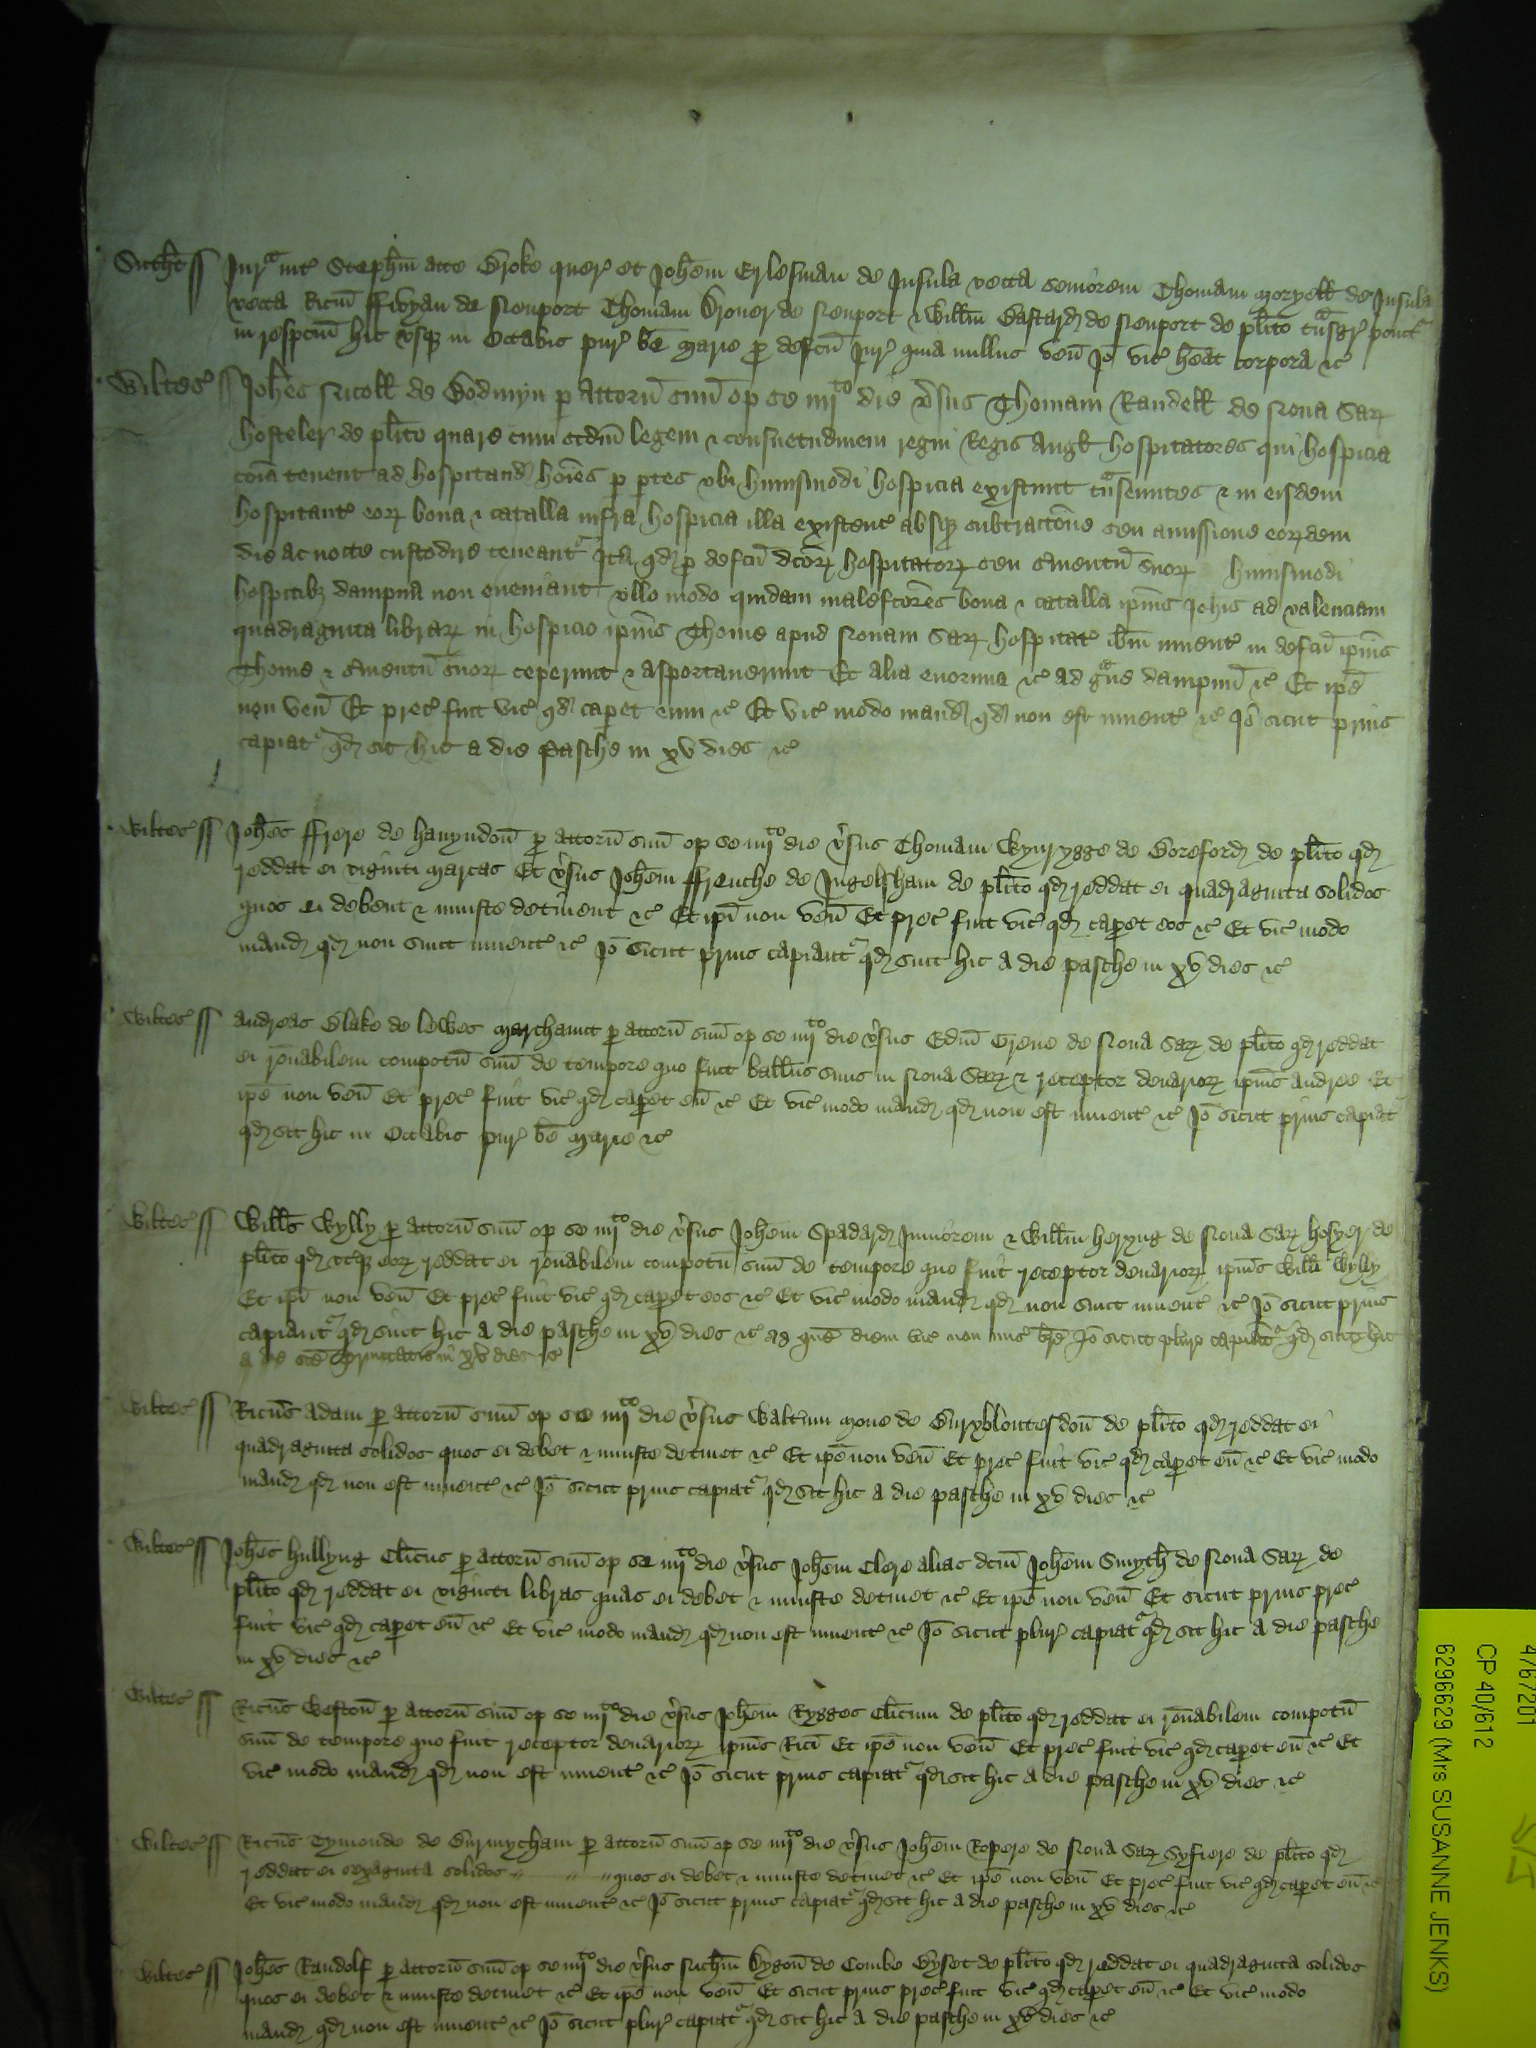 Sutht ss Jurͣ int Stephm atte Broke quer et Johem Erlesman de Insula vecta seniorem Thomam Moryell de Insula
vecta Ricm ffivyan de Neuport Thomam de Neuport & Willm Bastard de Neuport de plito tͣnsgr ponitʳ
in respcm hic vsq in Octabis pur be Marie p defcu Jur quia nullus ven Jo vic heat corpora &c
Wiltes ss Johes Nicoll de Bodmyn p attorn suu op se iiijto die vsus Thomam Randell de Noua Sar
hosteler de plito quare cum scdm legem & consuetudinem regni Regis Angl hospitatores qui hospicia
coia tenent ad hospitand hoies p ptes vbi huiusmodi hospicia existunt tͣnseuntes & in eisdem
hospitant eor bona & catalla infra hospicia illa existenc absq subtraccone seu amissione eordem
die ac nocte custodire teneantʳ Ita qd p defcu dcor hospitator seu svientu suor huiusmodi
hospitibz dampna non eueniant vllo modo quidam malefcores bona & catalla ipius Johis ad valenciam
quadraginta librar in hospicio ipius Thome apud Nouam Sar hospitat ibm inuent in defcu ipius
Thome & svientu suor ceperunt & asportauerunt Et alia enormia &c ad gͣue dampnu &c Et ipe
non ven Et prec fuit vic qd capet eum &c Et vic modo mand qd non est inuent &c Jo sicut prius
capiatʳ qd sit hic a die Pasche in xv dies &c
Wiltes ss Johes ffrere de hanyndon p attorn suu op se iiijto die vsus Thomam Wynrygge de Boreford de plito qd
reddat ei viginti marcas Et vsus Johem ffrenche de Ingelsham de plito qd reddat ei quadraginta solidos
quos ei debent & iniuste detinent &c Et ipi non ven Et prec fuit vic qd capet eos &c Et vic modo
mand qd non sunt inuent &c Jo sicut prius capiantʳ qd sint hic a die pasche in xv dies &c
Wiltes ss Andreas Blake de lewes marchaunt p attorn suu op se iiijto die vsus Edm Grene de Noua Sar de plito qd reddat
ei ronabilem compotu suu de tempore quo fuit balliuus suus in Noua Sar & receptor denarior ipius Andree Et
ipe non ven Et prec fuit vic qd capet eu &c Et vic modo mand qd non est inuent &c Jo sicut prius capiatʳ
qd sit hic in Octabis pur be Marie &c
Wiltes ss Wills Wylly p attorn suu op se iiijto die vsus Johem Spadard Juniorem & Willm heryng de Noua Sar hosyer de
plito qd vtq eor reddat ei ronabilem compotu suu de tempore quo fuit receptor denarior ipius Willi Wylly
Et ipi non ven Et prec fuit vic qd capet eos &c Et vic modo mand qd non sunt inuent &c Jo sicut prius
capiantʳ qd sint hic a die pasche in xv dies &c ad quem diem vic non mis bre Jo sicut plur capiantʳ qd sint hic
a die sce Trinitatis in xv dies &c
Wiltes ss Ricus Adam p attorn suu op se iiijto die vsus Waltum Mone de de plito qd reddat ei
quadraginta solidos quos ei debet & iniuste detinet &c Et ipe non ven Et prec fuit vic qd capet eu &c Et vic modo
mand qd non est inuent &c Jo sicut prius capiatʳ qd sit hic a die pasche in xv dies &c
Wiltes ss Johes hullyng Clicus p attorn suu op se iiijto die vsus Johem Clere alias dcm Johem Smyth de Noua Sar de
plito qd reddat ei viginti libras quas ei debet & iniuste detinet &c Et ipe non ven Et sicut prius prec
fuit vic qd capet eu &c Et vic modo mand qd non est inuent &c Jo sicut plur capiatʳ qd sit hic a die pasche
in xv dies &c
Wiltes ss Ricus Weston p attorn suu op se iiijto die vsus Johem Rygges Clicum de plito qd reddat ei ronabilem compotu
suu de tempore quo fuit receptor denarior ipius Rici Et ipe non ven Et prec fuit vic qd capet eu &c Et
vic modo mand qd non est inuent &c Jo sicut prius capiatʳ qd sit hic a die pasche in xv dies &c
Wiltes ss Ricus Tymonde de Burmycham p attorn suu op se iiijto die vsus Johem Ropere de Noua Sar de plito qd
reddat ei sexaginta solidos quos ei debet & iniuste detinet &c Et ipe non ven Et prec fuit vic qd capet eu &c
Et vic modo mand qd non est inuent &c Jo sicut prius capiatʳ qd sit hic a die pasche in xv dies &c
Wiltes ss Johes Randolf p attorn suu op se iiijto die vsus Nichm Dygon de Combe Bysset de plito qd reddat ei quadraginta solidos
quos ei debet & iniuste detinet &c Et ipe non ven Et sicut prius prec fuit vic qd capet eu &c Et vic modo
mand qd non est inuent &c Jo sicut plur capiatʳ qd sit hic a die pasche in xv dies &c
4767201
CP 40/612
6296629 (Mrs SUSANNE JENKS)